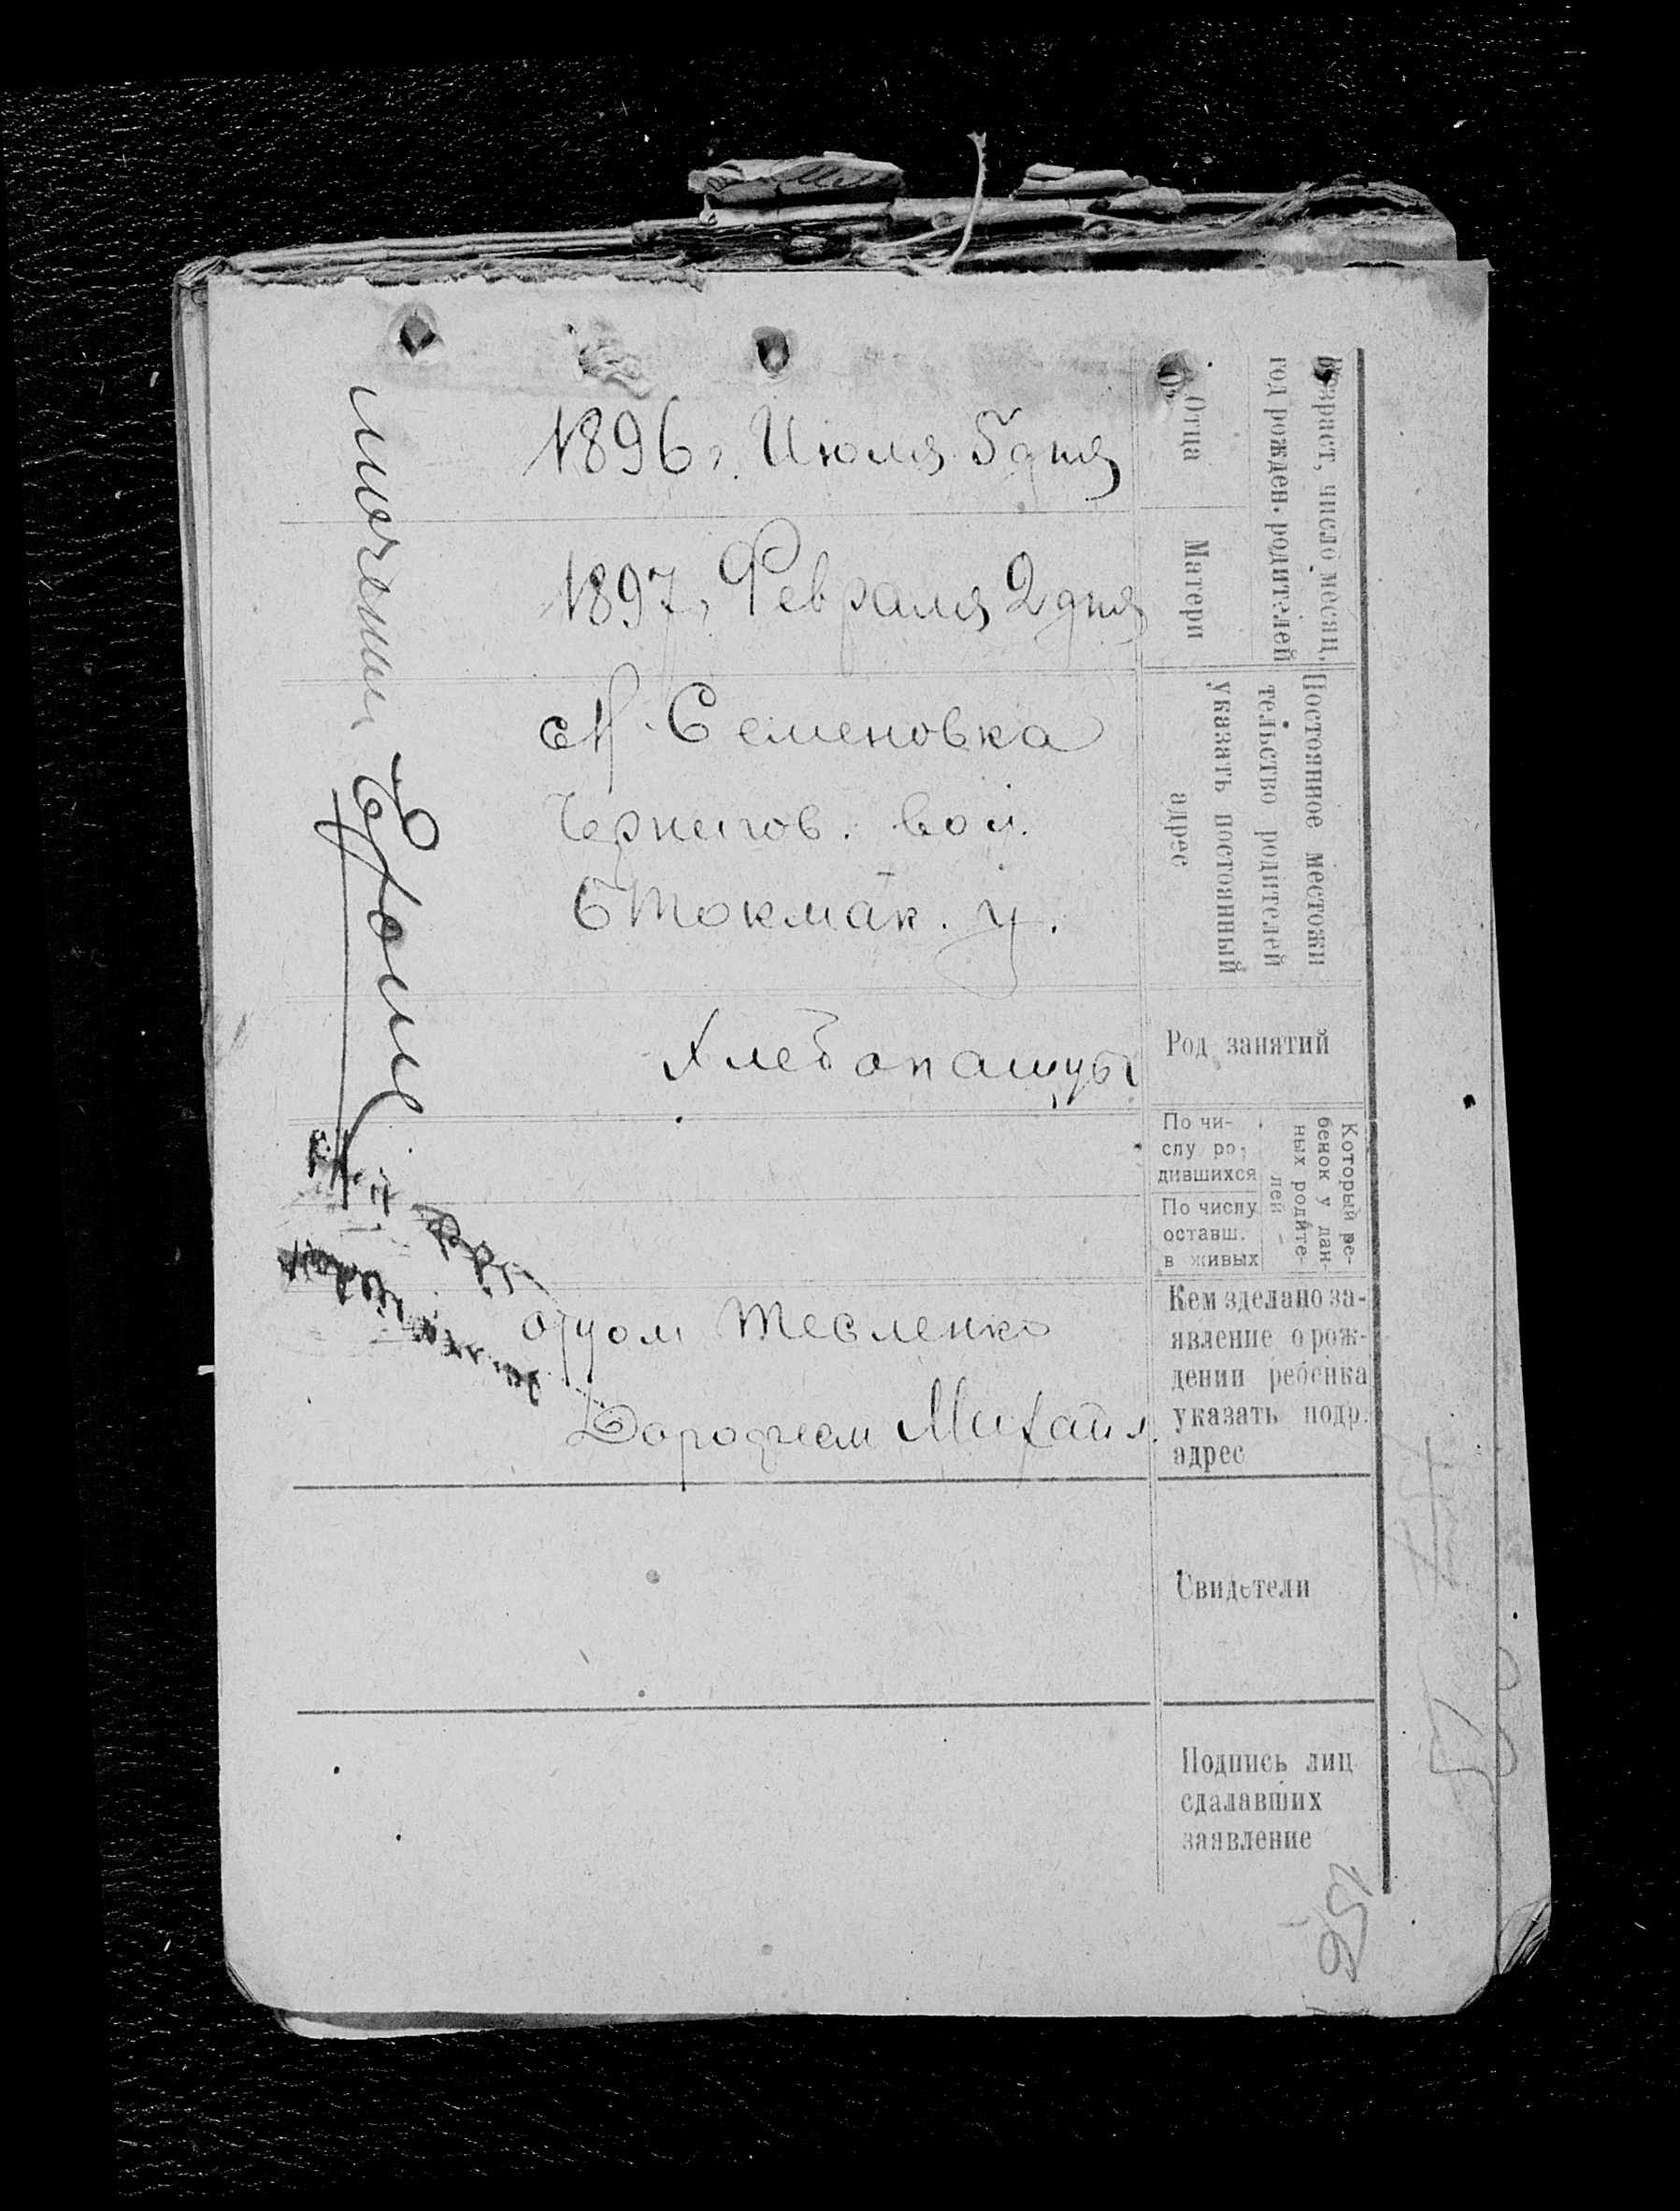 Возраст, число месяц,
год рожден. родителей
Отца
1896 г. Июля 5 дня
Матери
1897, Февраля 2 дня
Постоянное местожи
тельство родителей
указать постоянный
адрес
М. Семеновка
Чернигов. вол.
Б Токмак. у.
Род занятий
Хлебопашцы
Который ре-
бенок у дан-
ных родите-
лей -
По чи-
слу ро-
дившихся
По числу
оставш.
в живых
Кем зделано за-
явление о рож-
дении ребенка
указать подр.
адрес
отцом Тесленко
Михаил.
Свидетели
Подпись лиц
сдалавших
заявление
156